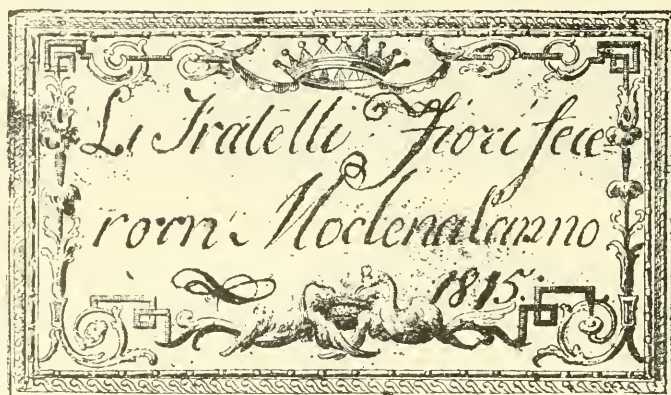 Li Fratelli Fiori fece=
ro in Modena l'anno
1815.